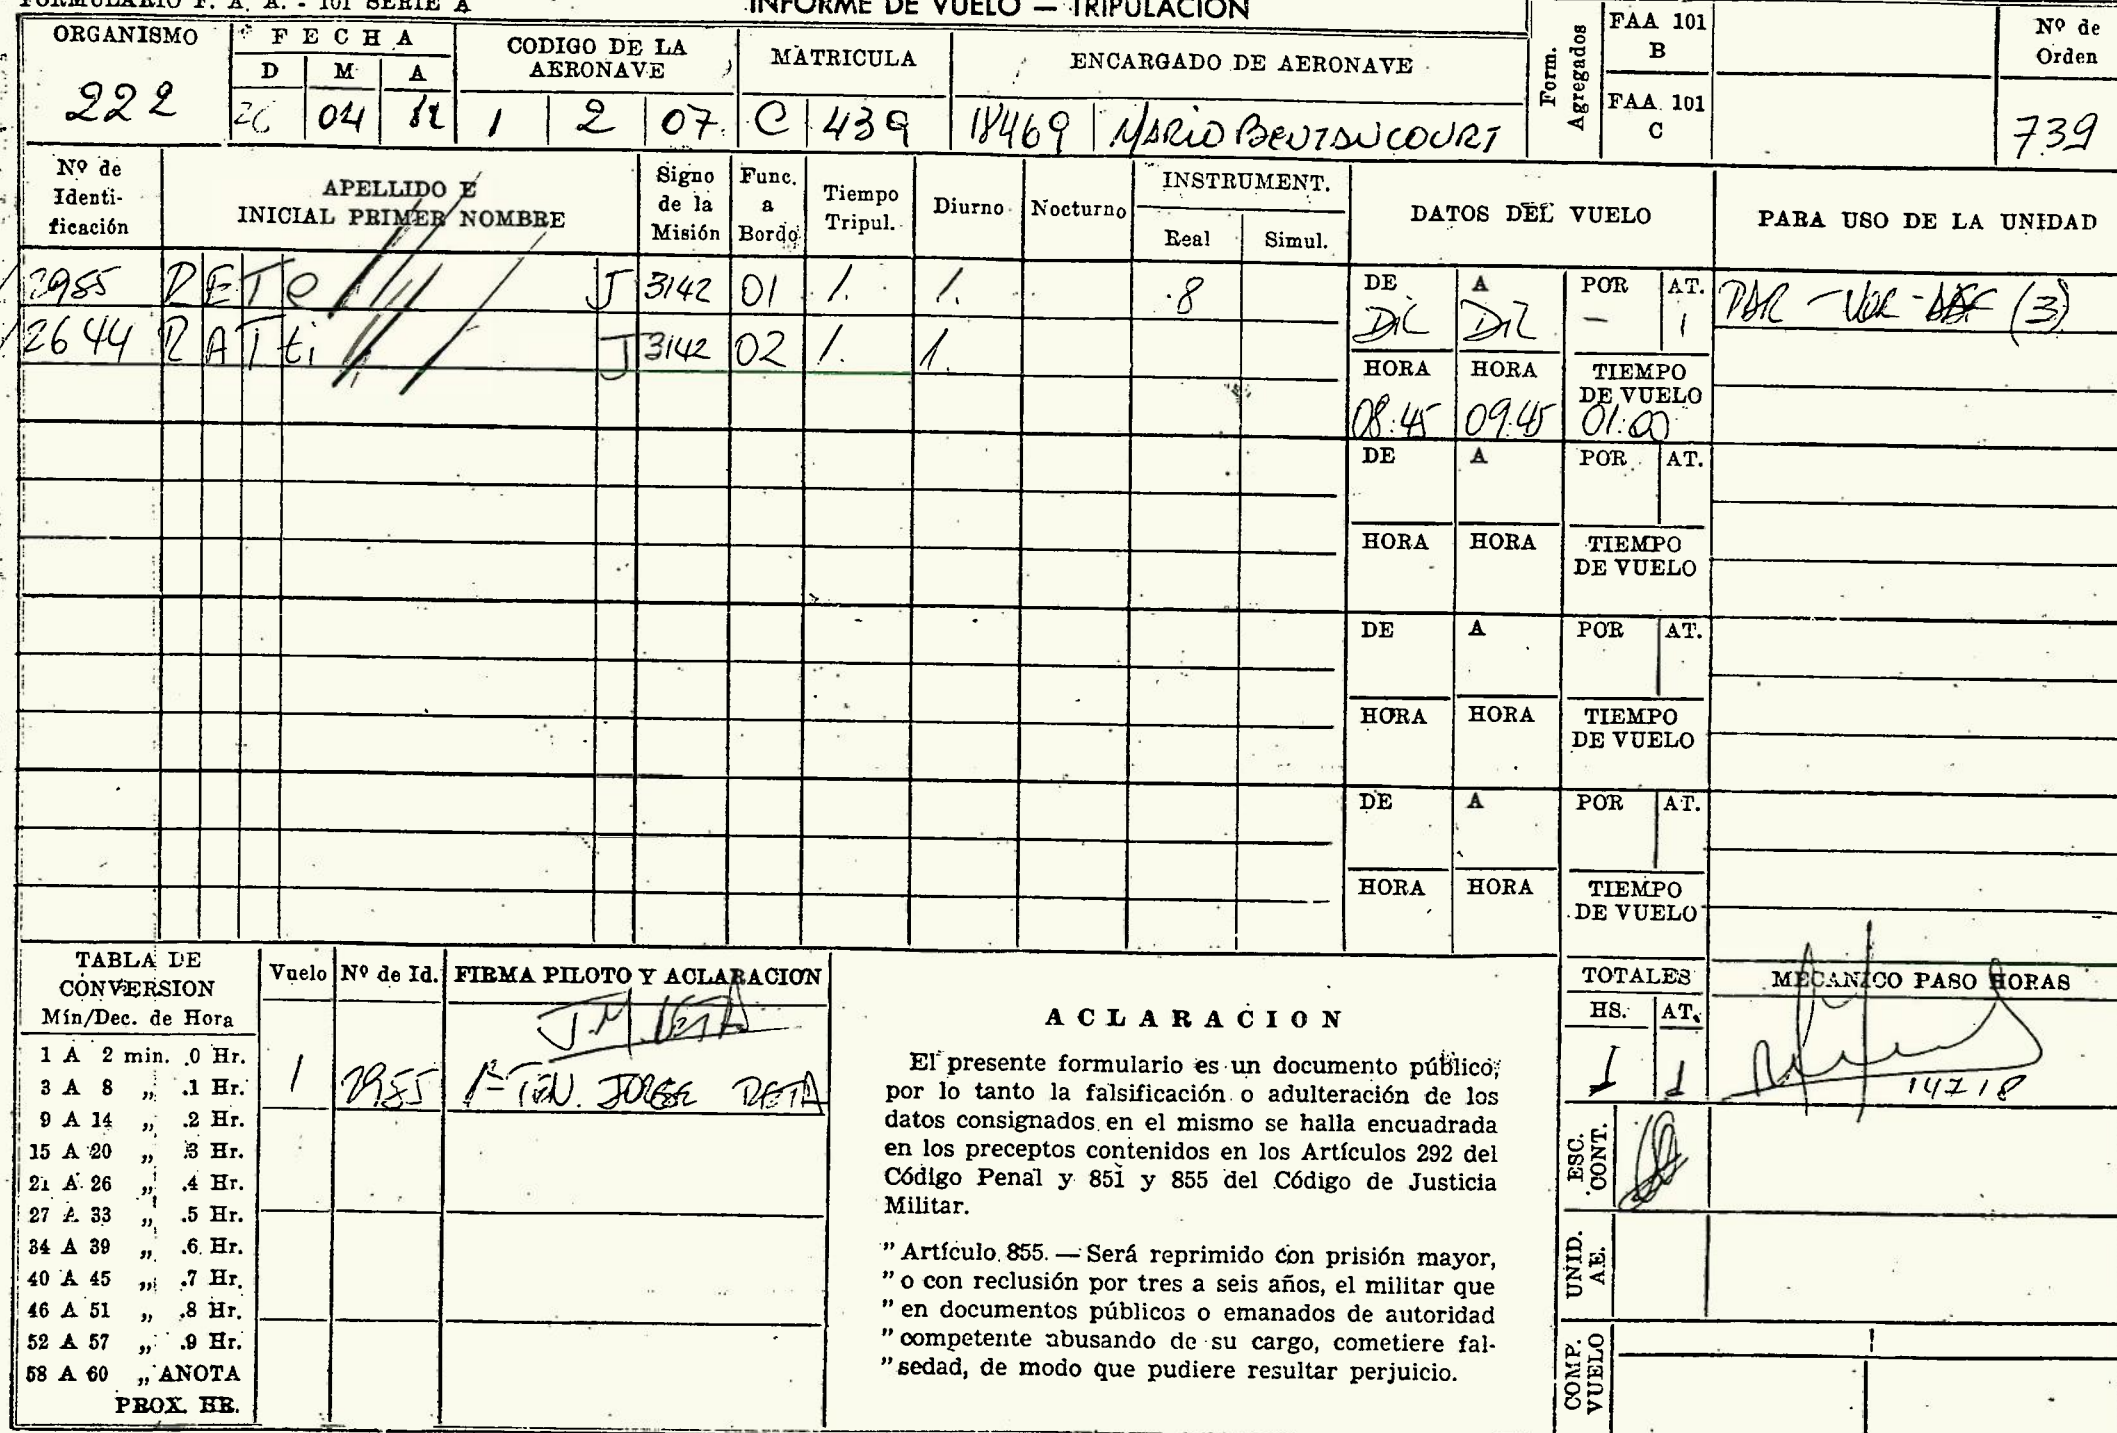 FORMULARIO F. A. A. - 101 SERIE A
INFORME DE VUELO — TRIPULACION
ORGANISMO
222
FECHA
D M A
26 04 82
CODIGO DE LA AERONAVE
1 2 07
MATRICULA
C 439
ENCARGADO DE AERONAVE
18469 MARIO BENTANCOURT
Form. Agregados
FAA 101 B
FAA 101 C
Nº de Orden
739
Nº de Identificación
APELLIDO E INICIAL PRIMER NOMBRE
Signo de la Misión
Func. a Bordo
Tiempo Tripul.
Diurno
Nocturno
INSTRUMENT.
Real Simul.
DATOS DEL VUELO
PARA USO DE LA UNIDAD
2985 J 3142 01 1. 1. .8
2644 RATti J 3142 02 1. 1.
DE A POR AT.
DIL DIL — 1
(3)
HORA HORA TIEMPO DE VUELO
08:45 09:45 01:00
DE A POR AT.
HORA HORA TIEMPO DE VUELO
DE A POR AT.
HORA HORA TIEMPO DE VUELO
DE A POR AT.
HORA HORA TIEMPO DE VUELO
TABLA DE
CONVERSION
Mín/Dec. de Hora
1 A 2 min. .0 Hr.
3 A 8 „ .1 Hr.
9 A 14 „ .2 Hr.
15 A 20 „ .3 Hr.
21 A 26 „ .4 Hr.
27 A 33 „ .5 Hr.
34 A 39 „ .6 Hr.
40 A 45 „ .7 Hr.
46 A 51 „ .8 Hr.
52 A 57 „ .9 Hr.
58 A 60 „ ANOTA
PROX. HR.
Vuelo Nº de Id. FIRMA PILOTO Y ACLARACION
1 2985 1º TEN. JORGE
ACLARACION
El presente formulario es un documento público;
por lo tanto la falsificación o adulteración de los
datos consignados en el mismo se halla encuadrada
en los preceptos contenidos en los Artículos 292 del
Código Penal y 851 y 855 del Código de Justicia
Militar.
" Artículo 855. — Será reprimido con prisión mayor,
" o con reclusión por tres a seis años, el militar que
" en documentos públicos o emanados de autoridad
" competente abusando de su cargo, cometiere fal-
" sedad, de modo que pudiere resultar perjuicio.
TOTALES
HS. AT.
1 1
MECANICO PASO HORAS
14718
ESC. CONT.
UNID. AE.
COMP. VUELO